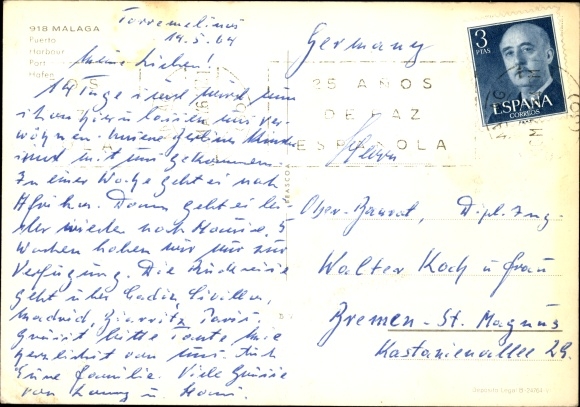 918 MALAGA
Puerto
Harbour
Port
Hafen
Torremolinos
19.5.64
Meine Lieben!
14 Tage sind wird nun
schon hier u lassen uns ver-
wöhnen. Unsere Berliner Kinder
sind mit uns gekommen.
In einer Woche geht es nach
Afrika. Dann geht es lei-
der wieder nach Hause. 5
Wochen haben wir nur zur
Verfügung. Die Rückreise
geht über Cadiz, Sevilla,
Madrid, Biarritz, Paris.
Grüsst bitte Tante Mie
herzlichst von uns. Für
Eure Familie. Viele Grüsse
von u. Hans.
Germany
25 AÑOS
DE PAZ
ESPAÑOLA
3
PTAS
ESPAÑA
CORREOS
Herrn
Ober-Baurat, Dipl. Ing.
Walter Koch u Frau
Bremen-St. Magnus
Kastanienallee 29.